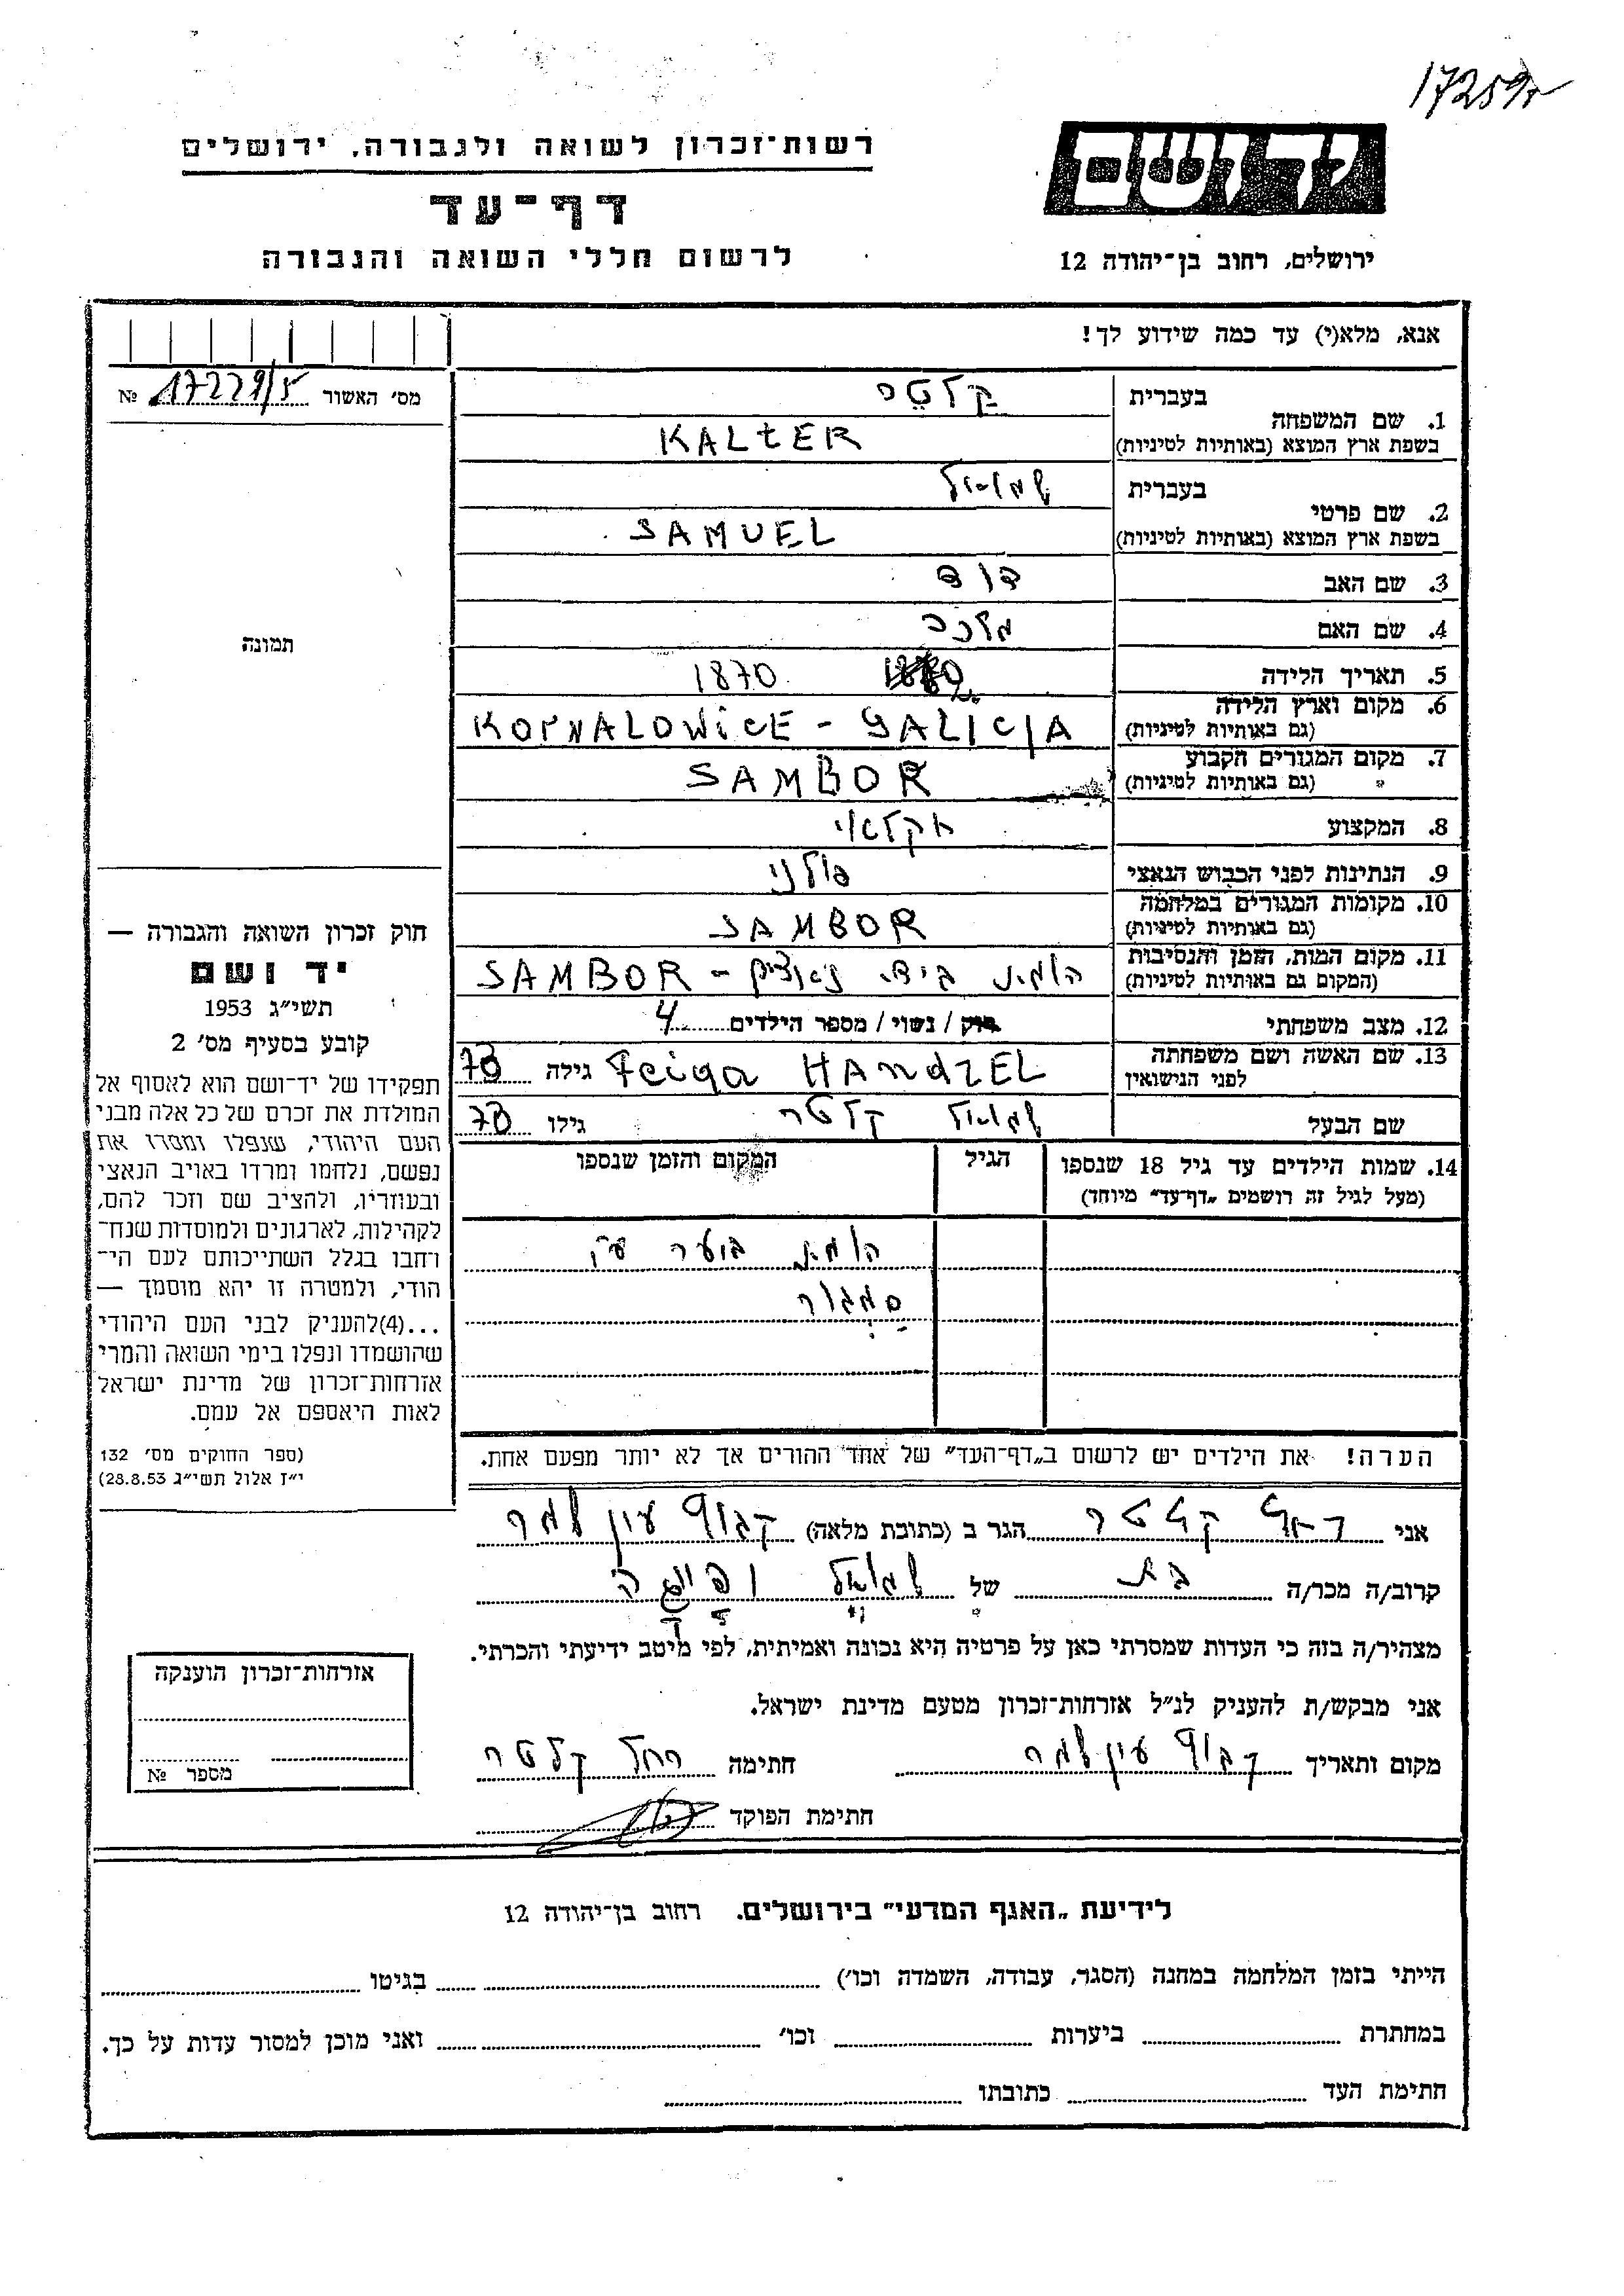 17259ד
רשות־זכרון לשואה ולגבורה, ירושלים
דף־עד
לרשום חללי השואה והגבורה
יד ושם
ירושלים, רחוב בן־יהודה 12
אנא, מלא(י) עד כמה שידוע לך!
מס׳ האשור 17229/5 №
1. שם המשפחה
בעברית קלטר
בשפת ארץ המוצא (באותיות לטיניות) KALTER
2. שם פרטי
בעברית שמואל
בשפת ארץ המוצא (באותיות לטיניות) SAMUEL
3. שם האב דוד
4. שם האם מלכה
5. תאריך הלידה 1870
6. מקום וארץ הלידה
(גם באותיות לטיניות) KORNALOWICE - GALICIA
7. מקום המגורים הקבוע
(גם באותיות לטיניות) SAMBOR
8. המקצוע חקלאי
9. הנתינות לפני הכבוש הנאצי פולני
10. מקומות המגורים במלחמה
(גם באותיות לטיניות) SAMBOR
11. מקום המות, הזמן והנסיבות
(המקום גם באותיות לטיניות) הומת בידי נאצים - SAMBOR
12. מצב משפחתי רוק / נשוי / מספר הילדים 4
13. שם האשה ושם משפחתה
לפני הנישואין Feiga HANDZEL גילה 70
שם הבעל שמואל קלטר גילו 70
14. שמות הילדים עד גיל 18 שנספו
(מעל לגיל זה רושמים „דף־עד״ מיוחד)
הגיל
המקום והזמן שנספו
הומת
סמבור
הערה! את הילדים יש לרשום ב„דף־העד״ של אחד ההורים אך לא יותר מפעם אחת.
תמונה
חוק זכרון השואה והגבורה —
יד ושם
תשי״ג 1953
קובע בסעיף מס׳ 2
תפקידו של יד־ושם הוא לאסוף אל
המולדת את זכרם של כל אלה מבני
העם היהודי, שנפלו ומסרו את
נפשם, נלחמו ומרדו באויב הנאצי
ובעוזריו, ולהציב שם וזכר להם,
לקהילות, לארגונים ולמוסדות שנח־
רחבו בגלל השתייכותם לעם הי־
הודי, ולמטרה זו יהא מוסמך —
...(4)להעניק לבני העם היהודי
שהושמדו ונפלו בימי השואה והמרי
אזרחות־זכרון של מדינת ישראל
לאות היאספם אל עמם.
(ספר החוקים מס׳ 132
י״ז אלול תשי״ג 28.8.53)
אני רחל קלטר הגר ב (כתובת מלאה) קבוץ עין שמר
קרוב/ה מכר/ה בת של שמואל ופייגה
מצהיר/ה בזה כי העדות שמסרתי כאן על פרטיה היא נכונה ואמיתית, לפי מיטב ידיעתי והכרתי.
אני מבקש/ת להעניק לנ״ל אזרחות־זכרון מטעם מדינת ישראל.
מקום ותאריך קבוץ עין שמר חתימה רחל קלטר
חתימת הפוקד
אזרחות־זכרון הוענקה
מספר №
לידיעת „האגף המדעי״ בירושלים. רחוב בן־יהודה 12
הייתי בזמן המלחמה במחנה (הסגר, עבודה, השמדה וכו׳) בגיטו
במחתרת ביערות וכו׳ ואני מוכן למסור עדות על כך.
חתימת העד כתובתו